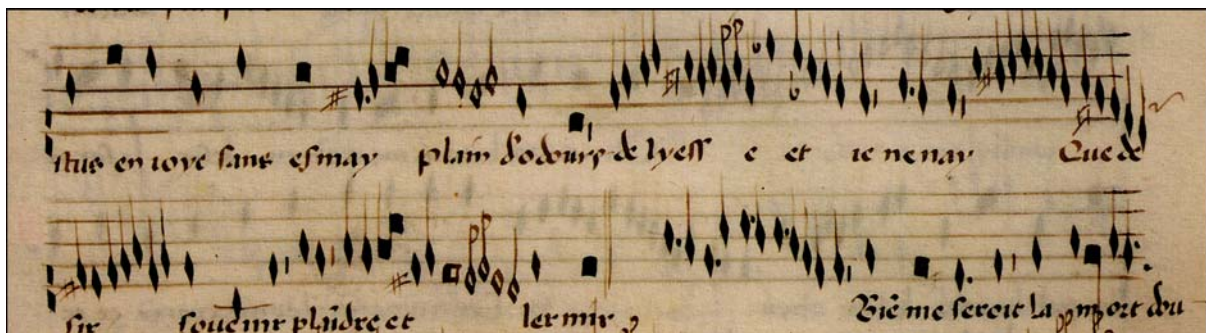 ictus en ioye sans esmay plain dodours de lyesse et ie nenay Que de
sir souvenir plaidre et lermir
Bie me seroit la mort dou